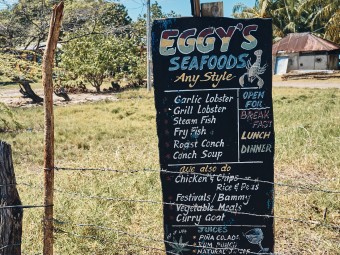 EGGY'S
SEAFOODS
Any Style
Garlic Lobster
Grill Lobster
Steam Fish
Fry Fish
Roast Conch
Conch Soup
OPEN
FOR
BREAK
FAST
LUNCH
DINNER
we also do
Chicken & Chips
Rice & Peas
Festivals/Bammy
Vegetable Meals
Curry Goat
JUICES
PINA COLADA
RUM PUNCH
NATURAL JUICE